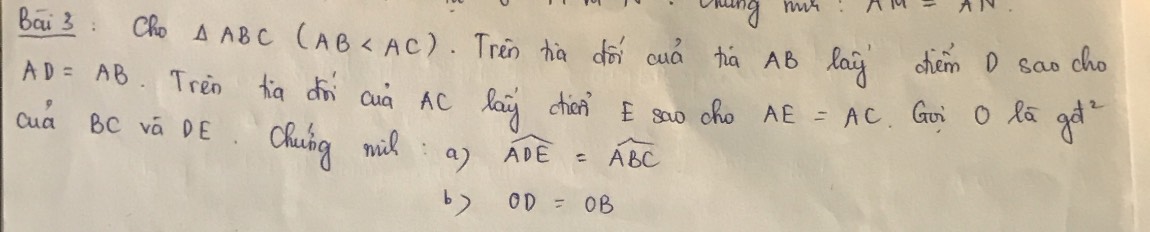 Chứng minh : AM = AN.
Bài 3 : Cho Δ ABC (AB < AC). Trên tia đối cuả tia AB lấy điểm D sao cho
AD = AB. Trên tia đối cuả AC lấy điểm E sao cho AE = AC. Gọi O là gđ²
cuả BC và DE. Chứng mih : a) \widehat{ADE} = \widehat{ABC}
b) OD = OB